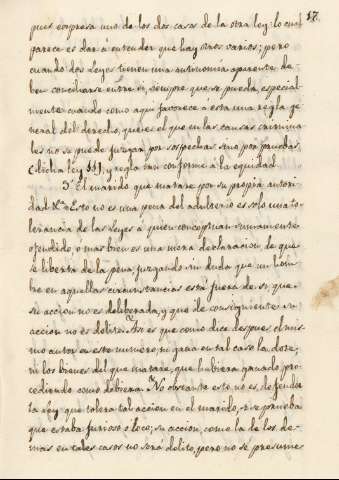 17
pues expresa uno de los dos casos de la otra ley: lo cual
parece es dar á entender que hay otros varios; pero
cuando dos Leyes tienen una autonomia aparente de-
ben conciliarse entre si, siempre que se pueda, especial
mente cuando como aqui favorece á esta una regla ge
neral del derecho, que es el que en las causas crimina
les no se puede juzgar por sospechas sino por pruebas,
dicha ley y regla tan conforme á la equidad.
3. El marido que matare por su propia autori
dad &a. Esto no es una pena del adulterio es solo una to-
lerancia de las Leyes á quien conceptuan sumamente
ofendido, o mas bien es una mera declaracion, de que
se liberta de la pena, juzgando sin duda que un hom-
bre en aquellas circunstancias está fuera de si, que
su accion no es deliberada, y que de consiguiente su
accion no es delito. Asi es que como dice despues el mis
mo autor en este numero, ni gana en tal caso la dote,
ni los bienes del que matare, que hubiera ganado pro-
cediendo como debiera. No obstante esto, no es de
la ley que tolera tal accion en el marido, si se prueba
que estaba furioso o loco; su accion, como la de los de-
mas en tales casos no será delito, pero no se presume